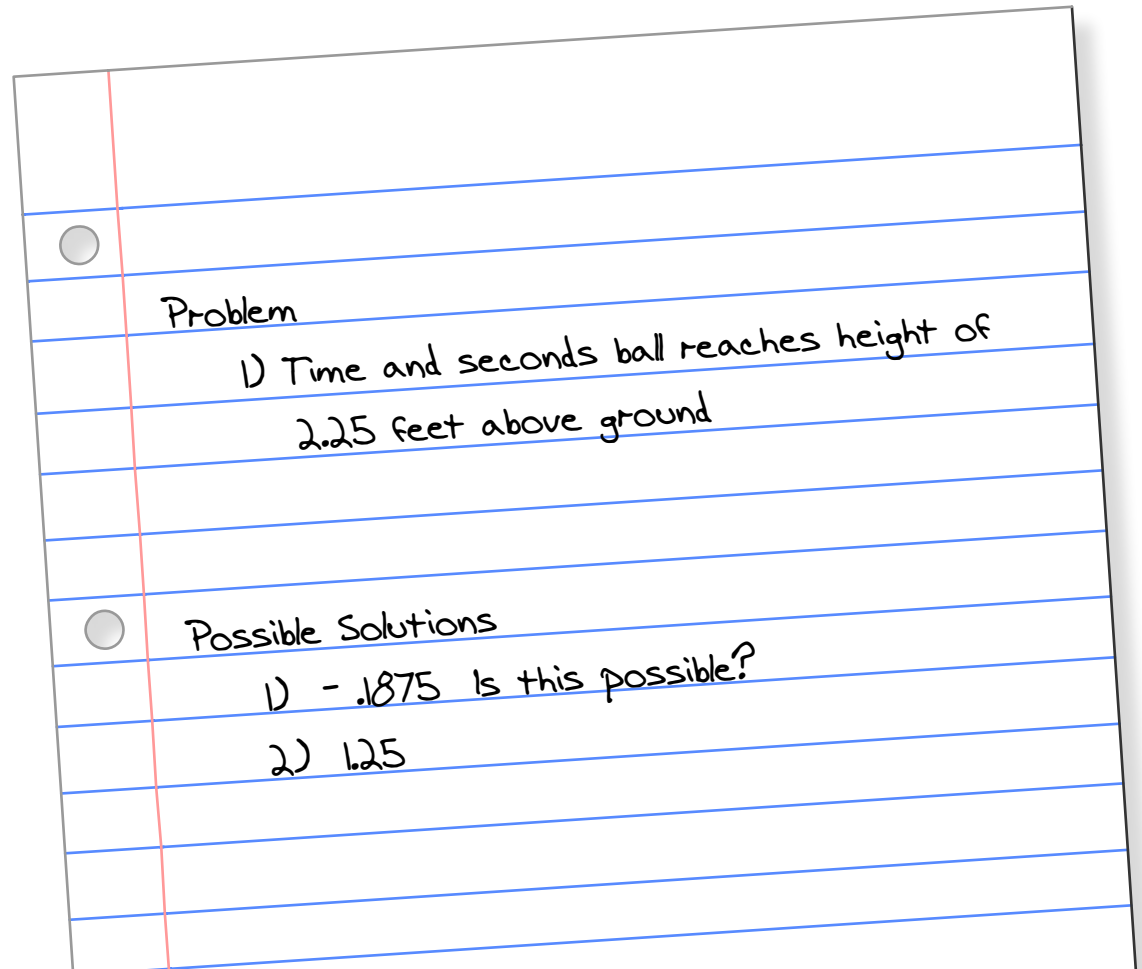 Problem
1) Time and seconds ball reaches height of
2.25 feet above ground
Possible Solutions
1) - .1875 Is this possible?
2) 1.25